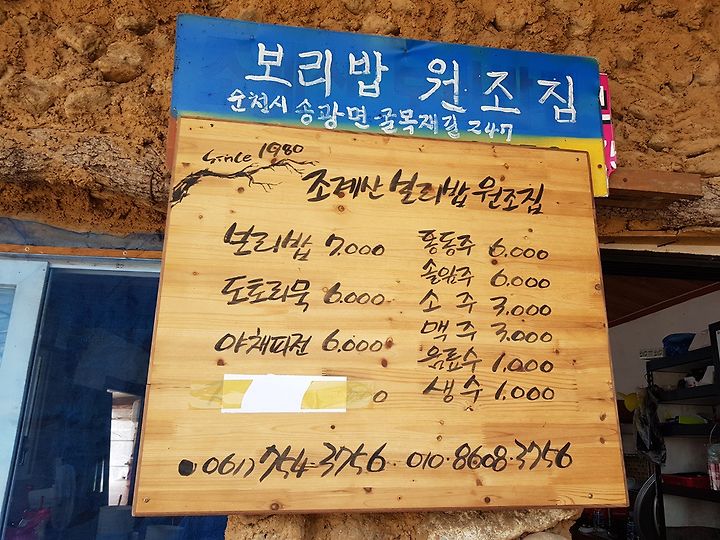 보리밥 원조집
순천시 송광면 굴목재길 247
Since 1980
조계산 보리밥 원조집
보리밥 7.000
도토리묵 6.000
야채파전 6.000
0
동동주 6.000
솔잎주 6.000
소주 3.000
맥주 3.000
음료수 1.000
생수 1.000
061) 754-3756 010-8608-3756